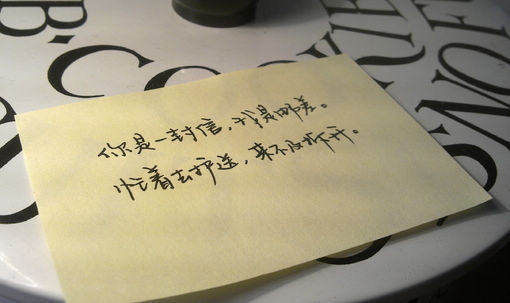 B·COOKI
你是一封信，我是邮差。
忙着去护送，来不及拆开。